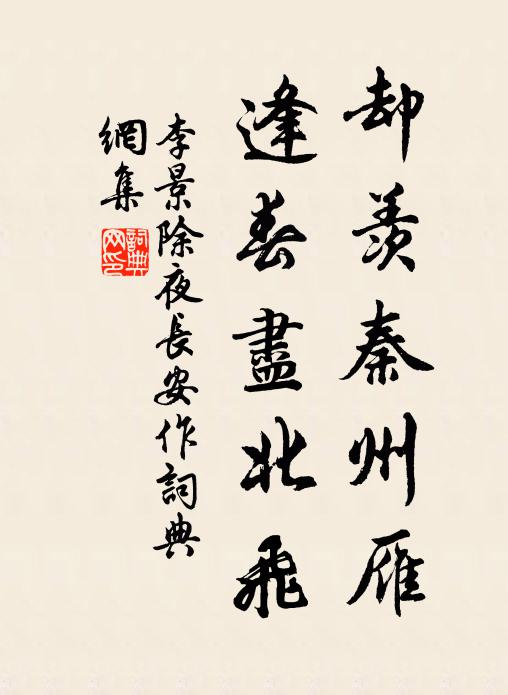 却羨秦州雁
逢春盡北飛
李景除夜長安作詞典
網集
詞典
网印